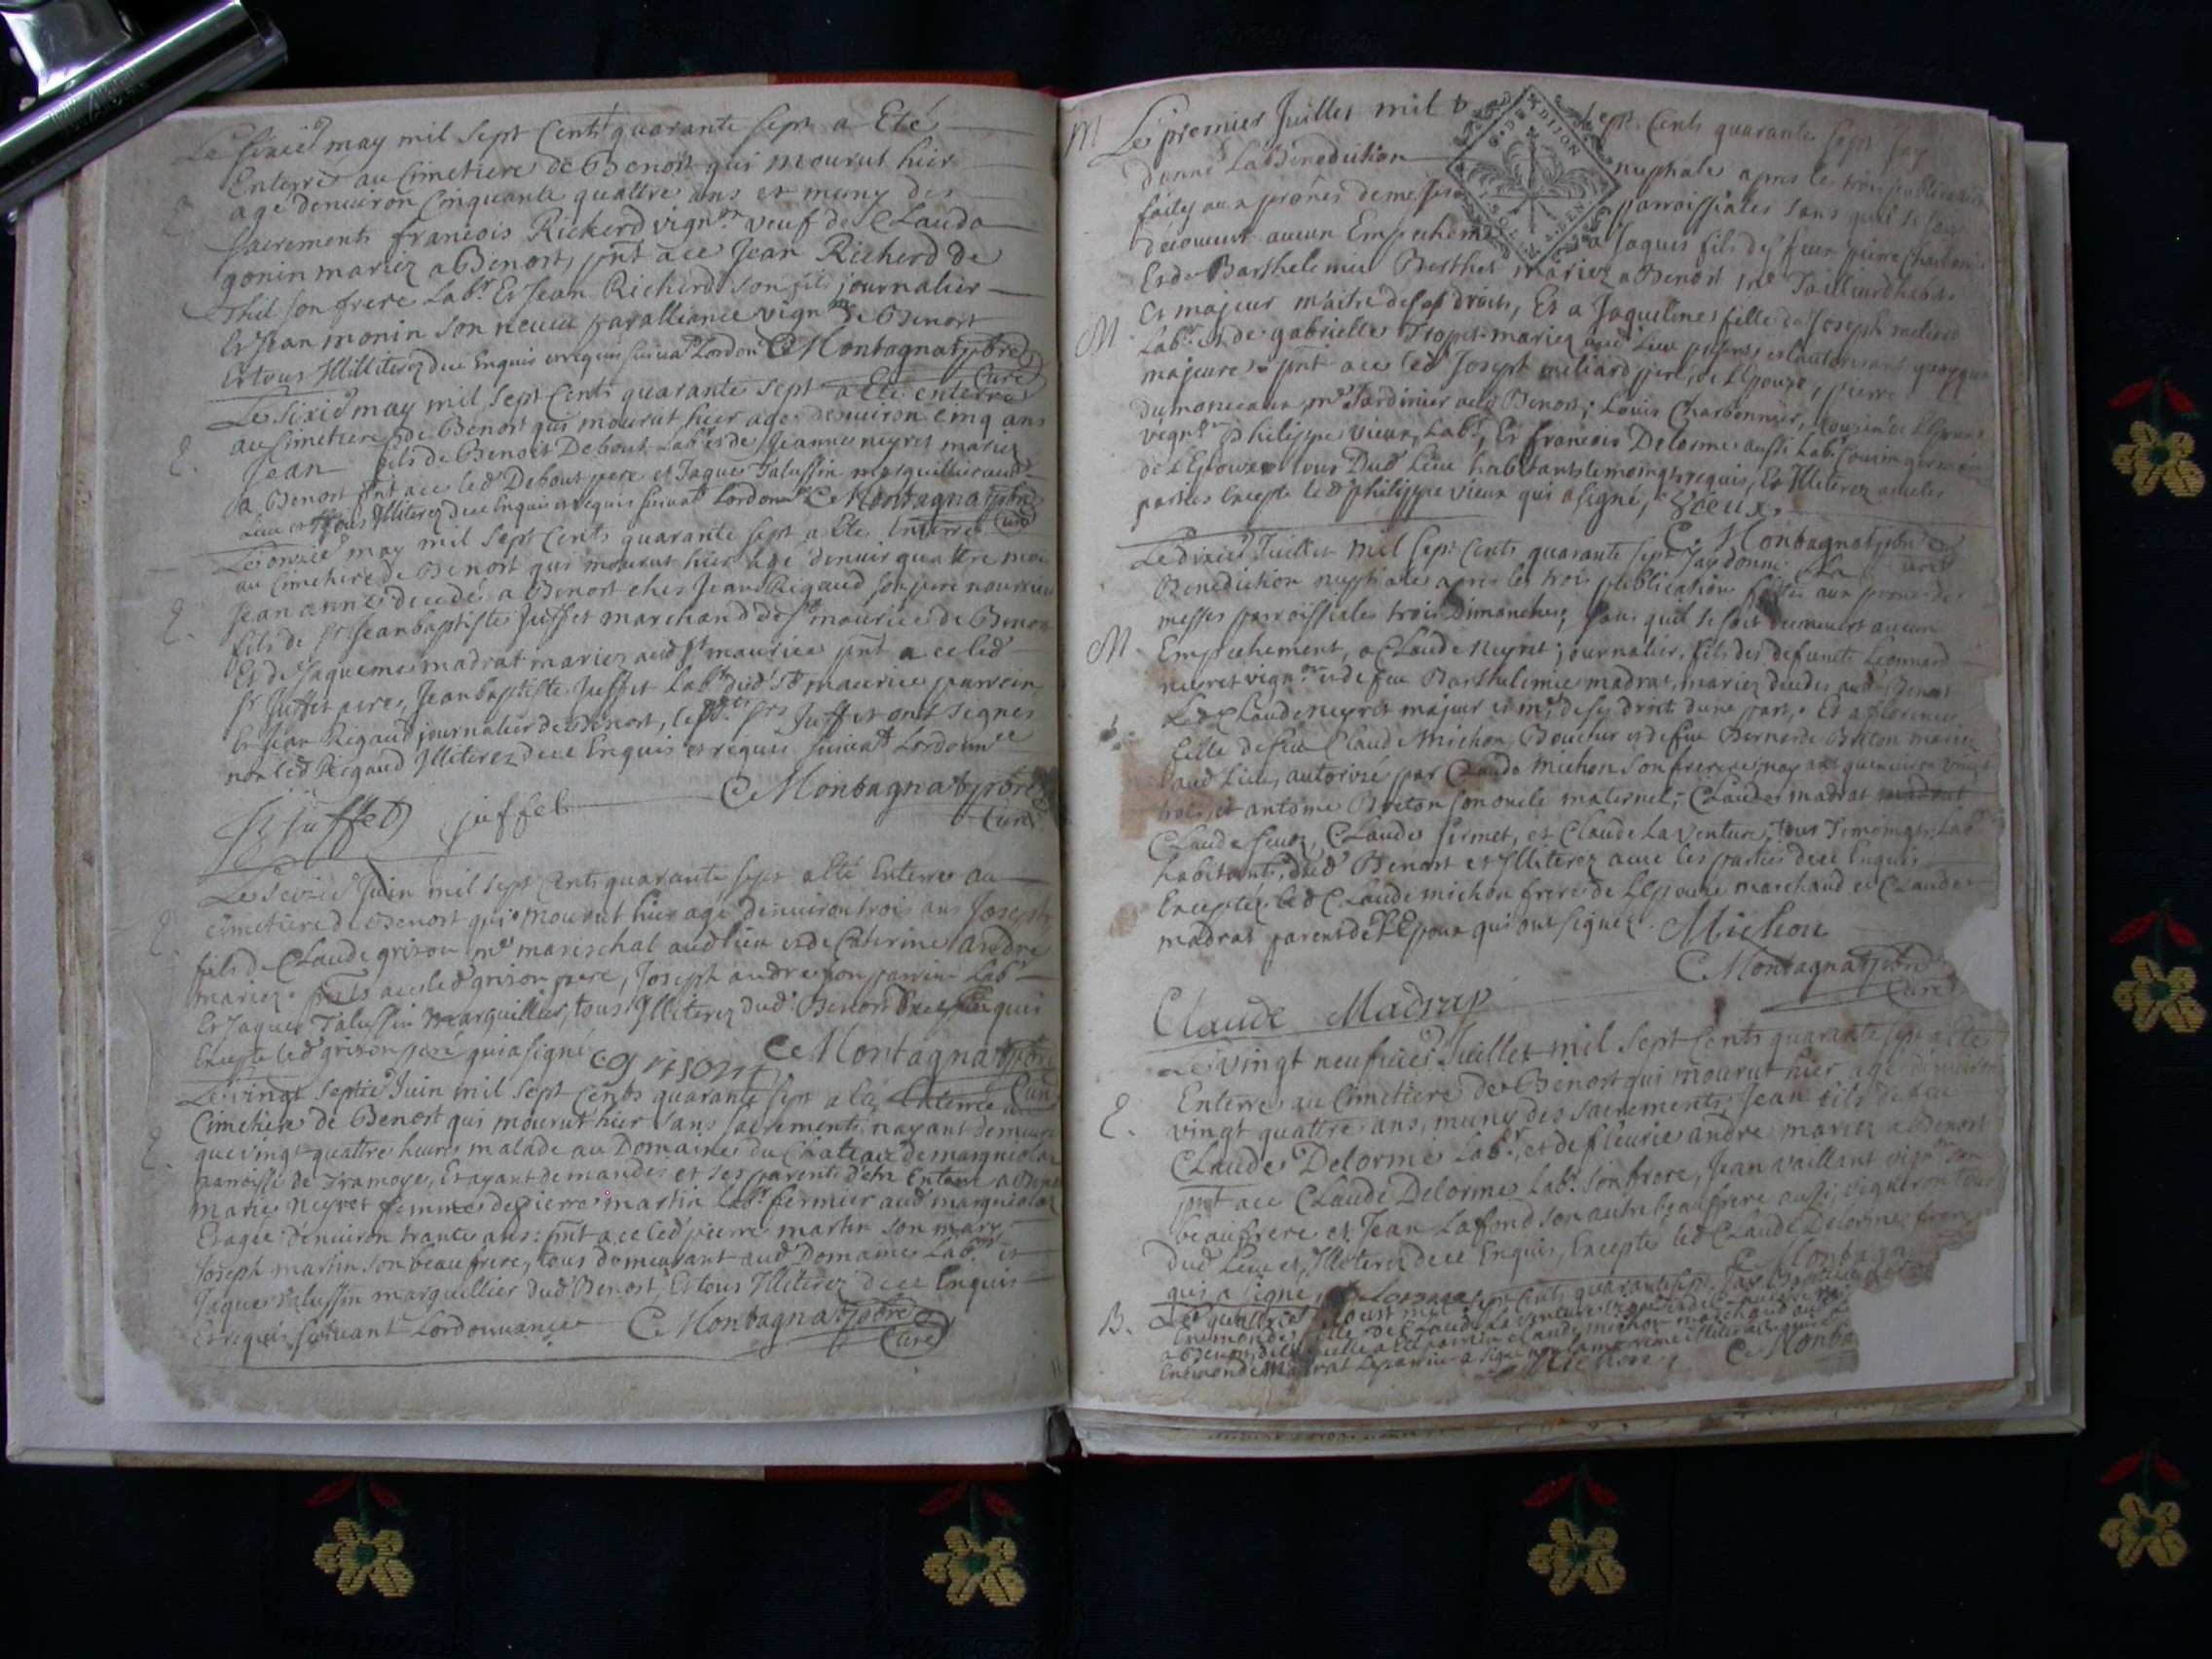 Le sixied may mil sept Cents quarante sept a Eté
Enterré au Cimetiere de Benost qui mourut hier
agé denuiron Cinquante quattre ans et muny des
E
Sacrements francois Rickerd vignon veuf de Clauda
gonin mariez a Benost, pnt a ce Jean Richerd de
Thil son frere Labr Et Jean Rickerd son fils journalier
Et Jean monin son neueu par alliance vignon de Benost
Et tous Illiterez dece Enquis et requis suivat Lordon Ce Montagnat pbre
Curé
Le Sixied may mil sept Cents quarante sept a Eté enterré
au Cimetiere de Benost qui mourut hier agé denuiron cinq ans
E.
Jean fils de Benoist Debout Labr et de Jeanne neyret mariez
a Benost pnt a ce led Debout pere et Jaques Talussin marguillier aud
Lieu et tous Illiterez dece Enquis et requis suivat Lordonn Ce Montagnat pbre
Curé
Le onzied may mil sept Cents quarante sept a Ete Enterré
au Cimetiere de Benost qui mourut hier agé denuir quattre moi
E.
Jean anne decedé a Benost ches Jean Rigaud son pere nourricier
fils de Sr Jean baptiste Juffet marchand de St maurice de Benost
Et de Jaqueme madrat mariez aud St maurice pnt a ce led
Sr Juffet pere, Jean baptiste Juffet Labr dud St maurice parrein
Et Jean Rigaud journalier de Benost, lesd. Srs Juffet ont Signes
non led Rigaud Illiterez dece Enquis et requis suivat Lordonnce
Ce Montagnat pbre
Curé
Juffet juffet
Le Seizied Juin mil sept Cents quarante sept a Eté Enterré au
E
Cimetiere de Benost qui mourut hier agé denuiron trois ans Joseph
fils de Claude grison me marischal aud lieu et de Caterine andre
mariez. pnts a ce led grison pere, Joseph andre son parrein Labr
Et Jaques Talussin marguillier, tous Illiterez dud. Benost dece Enquis
Excepte led grison pere qui a signé
C grison Ce Montagnat pbre
Curé
Le vingt septied Juin mil sept Cents quarante sept a Eté Enterrée au
Cimetiere de Benost qui mourut hier sans sacrements nayant demeuré
E.
que vingt quattre heures malade au Domaine du Chateau de margniolas
parroisse de Tramoye, Et ayant demandé et ses parents detre Enterré a Benost
marie neyret femme de pierre martin Labr fermier aud margniolas
Et agée denuiron trante ans: pnt a ce led pierre martin son mary
Joseph martin son beau frere, tous demeurant aud Domaine Labrs et
Jaques Talussin marguillier dud Benost, Et tous Illiterez dece Enquis
Et requis suivant Lordonnance Ce Montagnat pbre
Curé
M Le premier Juillet mil sept Cents quarante sept Jay
G. D. DIJON
donné La Benediction nuptiale apres les trois publications
faites aux prônes de messes parroissiales sans quil se soit
decouvert aucun Empechement a Jaques fils de feu pierre Charbonnier
Et de Barthelemie Berthet mariez a Benost me Tailleur dhabits
Et majeur maitre de ses droits, Et a Jaqueline fille de Joseph meliard
M.
Labr et de gabrielle Tropet mariez aud Lieu
majeure pnt a ce led Joseph meliard pere de Lepouse, pierre
dumonceau me Jardinier aud Benost; Louis Charbonnier, Cousin de Lepoux
vignon philippe vieux, Labr, Et francois Delorme aussi Labr Cousin germain
de Lepouze tous Dud Lieu habitants temoings requis, Et Illiterez avec les
parties Excepté led philippe vieux qui a signé, Vieux
C. Montagnat pbre
Curé
Le dixied Juillet mil sept Cents quarante sept Jay donné La
Benediction nuptiale apres les trois publications faites aux prones de
messes parroissiales trois Dimanches, sans quil se soit decouvert aucun
M.
Empechement, a Claude neyret journalier, fils des defuncts Leonnard
neyret vignon et de feue Barthelemie madrat, mariez decedes aud Benost
Led Claude neyret majeur et me de ses droits dune part. Et a florence
fille de feu Claude Michon, Boucher et de feue Bernarde Breton mariez
aud Lieu, autorisé par Claude Michon son frere nayant quenviron vingt
trois, et antoine Breton son oncle maternel; Claude madrat
Claude feuz, Claude fermet, et Claude La Venture, tous Temoings Labrs
habitants dud Benost et Illiterez avec les parties dece Enquis
Exceptez led Claude michon frere de Lepouze marchand et Claude
madrat parent de Lepoux qui ont signez. Michon
C Montagnat pbre
Curé
Claude Madrap
Le vingt neufvied Juillet mil sept Cents quarante sept a Eté
Enterré au Cimetiere de Benost qui mourut hier agé denuiron
E.
vingt quattre ans, muny des sacrements, Jean fils de feu
Claude Delorme Labr, et de fleurie andre mariez a Benost
pnt a ce Claude Delorme Labr. son frere, Jean vaillant vignon son
beaufrere et Jean Lafond son autre beaufrere aussi vigneron tous
dud Lieu et Illiterez dece Enquis, Excepté led Claude Delorme frere
qui a signé C Montagn
B. Le quattrie aoust mil sept Cents quarante sept Jay Baptisé
Enemonde fille de Claude La venture
a Benost, parrein Claude michon marchand aud
Enemonde madrat Le parrein a signé non la marreine Illiteré
Michon Ce Montag